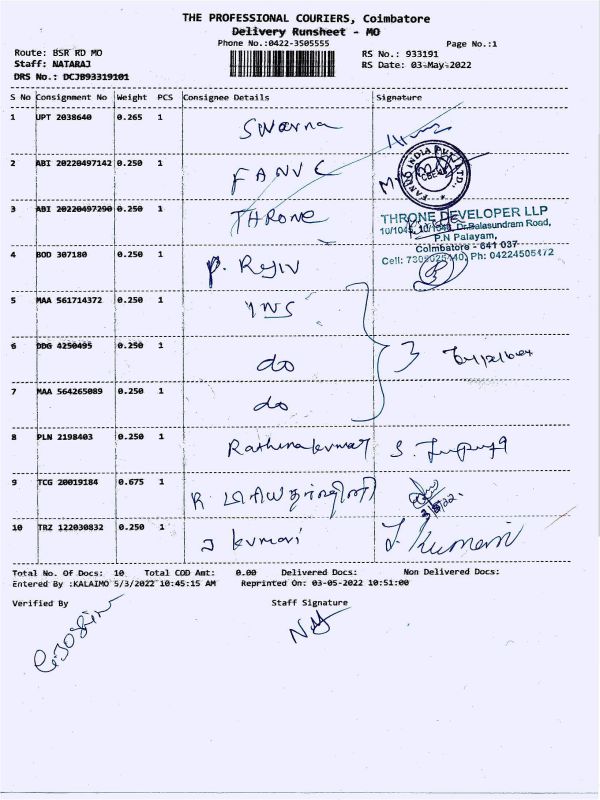 THE PROFESSIONAL COURIERS, Coimbatore
Delivery Runsheet - MO
Phone No.:0422-3505555
Page No.:1
Route: BSR RD MO
RS No.: 933191
Staff: NATARAJ
RS Date: 03-May-2022
DRS No.: DCJB93319101
S No Consignment No Weight PCS Consignee Details Signature
1 UPT 2038640 0.265 1 Swarna
2 ABI 20220497142 0.250 1 FANUC
FANUC INDIA PVT. LTD.
CBE
3 ABI 20220497290 0.250 1 THRONE
THRONE DEVELOPER LLP
Dr.Balasundram Road,
P.N Palayam,
Coimbatore - 641 037
Ph: 04224505472
4 BOD 307180 0.250 1 P. Rajiv
5 MAA 561714372 0.250 1 INS
6 DDG 4250495 0.250 1 do 3
7 MAA 564265089 0.250 1 do
8 PLN 2198403 0.250 1 Rathinakumar
9 TCG 20019184 0.675 1 R.
10 TRZ 122030832 0.250 1 J kumari J. Kumari
Total No. Of Docs: 10 Total COD Amt: 0.00 Delivered Docs: Non Delivered Docs:
Entered By :KALAIMO 5/3/2022 10:45:15 AM Reprinted On: 03-05-2022 10:51:00
Verified By Staff Signature